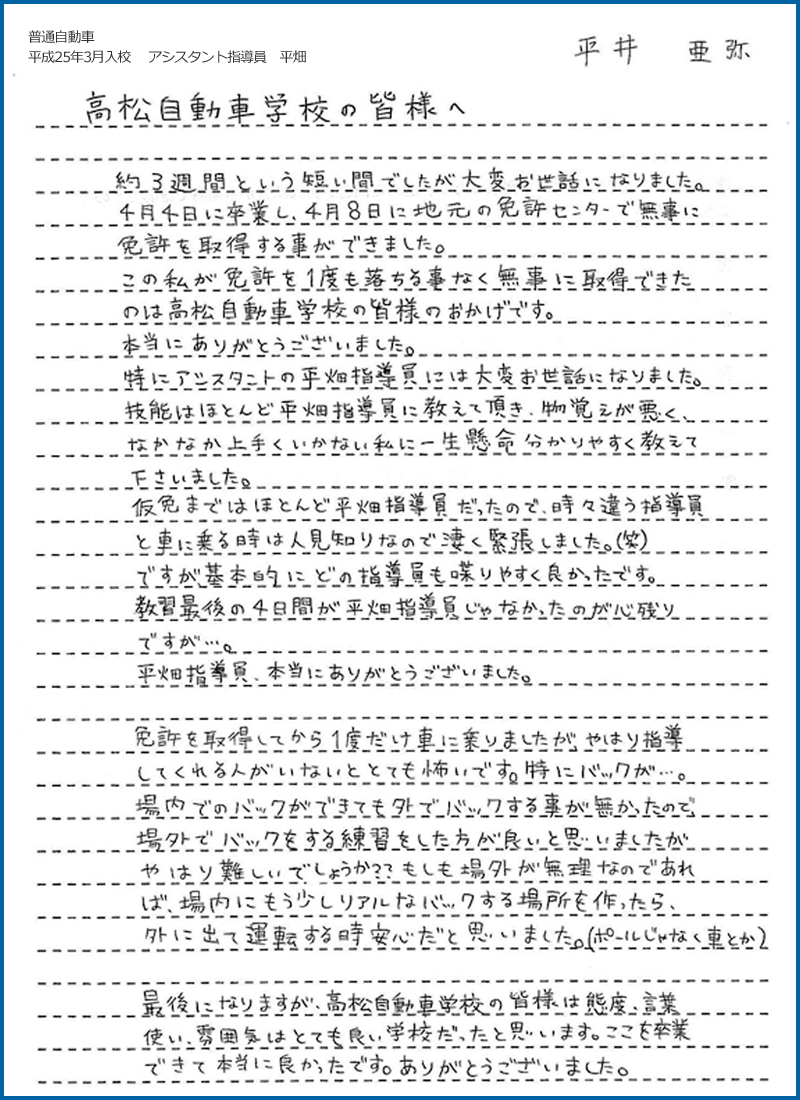 普通自動車
平成25年3月入校 アシスタント指導員 平畑
平井 亜弥
高松自動車学校の皆様へ
約3週間という短い間でしたが大変お世話になりました。
4月4日に卒業し、4月8日に地元の免許センターで無事に
免許を取得する事ができました。
この私が免許を1度も落ちる事なく無事に取得できた
のは高松自動車学校の皆様のおかげです。
本当にありがとうございました。
特にアシスタントの平畑指導員には大変お世話になりました。
技能はほとんど平畑指導員に教えて頂き、物覚えが悪く、
なかなか上手くいかない私に一生懸命分かりやすく教えて
下さいました。
仮免まではほとんど平畑指導員だったので、時々違う指導員
と車に乗る時は人見知りなので凄く緊張しました。(笑)
ですが、基本的にどの指導員も喋りやすく良かったです。
教習最後の4日間が平畑指導員じゃなかったのが心残り
ですが…。
平畑指導員、本当にありがとうございました。
免許を取得してから1度だけ車に乗りましたが、やはり指導
してくれる人がいないととても怖いです。特にバックが…。
場内でのバックができても外でバックする事が無かったので、
場外でバックをする練習をした方が良いと思いましたが
やはり難しいでしょうか??もしも場外が無理なのであれ
ば、場内にもう少しリアルなバックする場所を作ったら、
外に出て運転する時安心だと思いました。(ポールじゃなく車とか)
最後になりますが、高松自動車学校の皆様は態度、言葉
使い、雰囲気はとても良い学校だったと思います。ここを卒業
できて本当に良かったです。ありがとうございました。